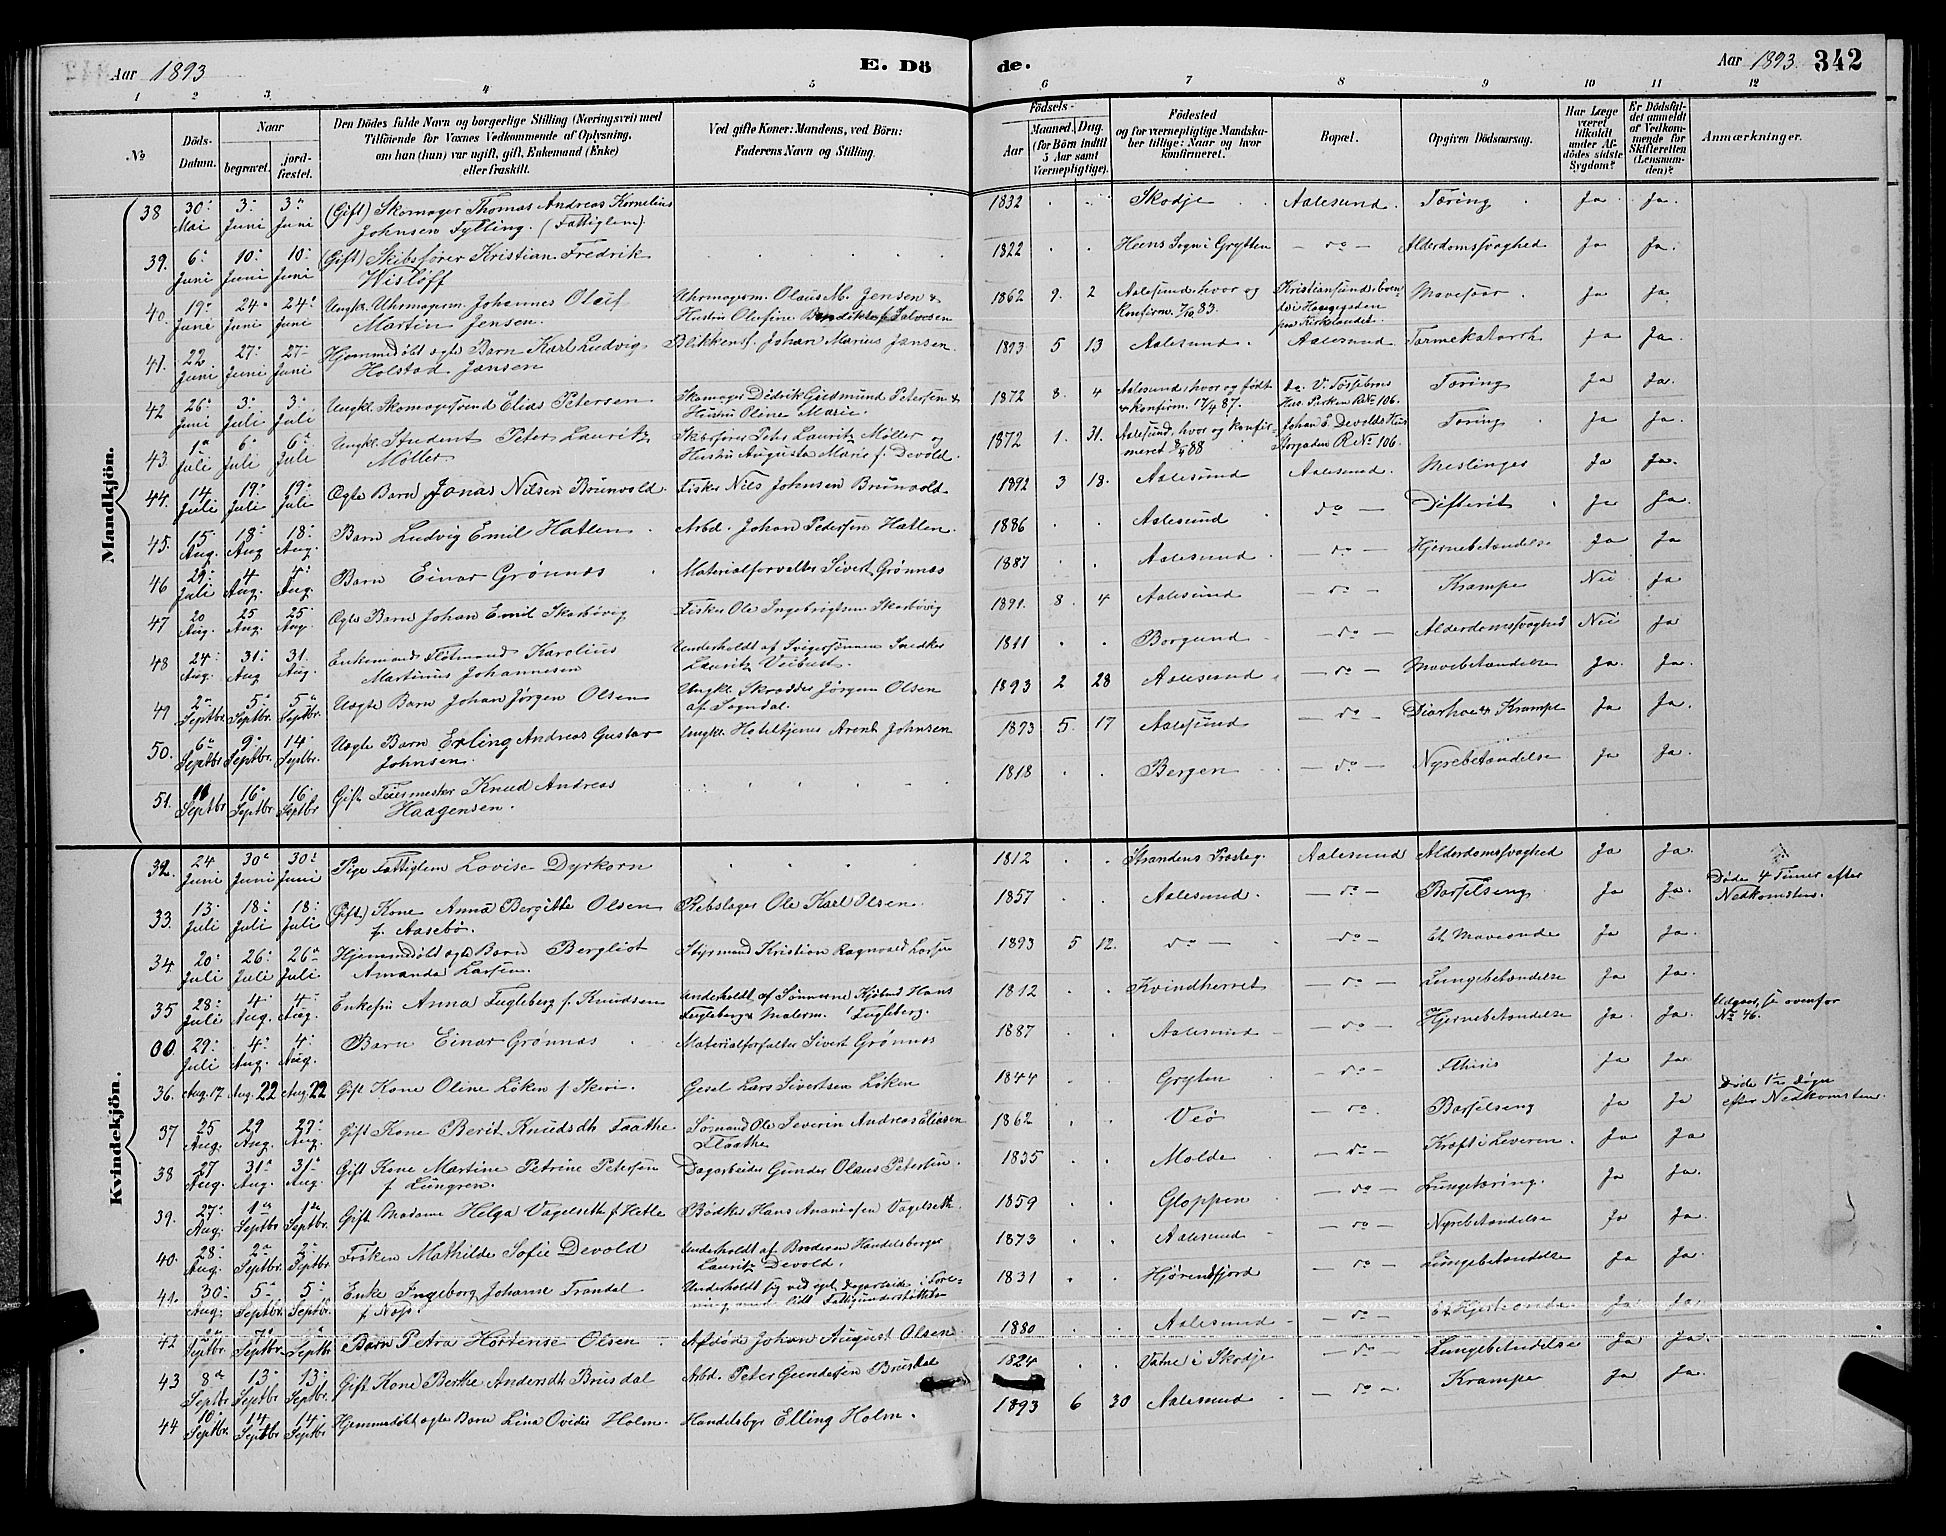 Aar 1893
E. Dö
de.
Aar 1893. 342
1 2 3 4 5 6 7 8 9 10 11 12
No
Döds-Datum.
Naar
begravet.
jord-fæstet.
Den Dödes fulde Navn og borgerlige Stilling (Næringsvei) med
Tilföiende for Voxnes Vedkommende af Oplysning,
om han (hun) var ugift, gift, Enkemand (Enke)
eller fraskilt.
Ved gifte Koner: Mandens, ved Börn:
Faderens Navn og Stilling.
Födsels-
Aar
Maaned. Dag.
(for Börn indtil
5 Aar samt
Værnepligtige).
Födested
og for værnepligtige Mandska-
ber tillige: Naar og hvor
konfirmeret.
Bopæl.
Opgiven Dödsaarsag.
Har Læge
været
tilkaldt
under Af-
dödes sidste
Sygdom?
Er Dödsfal-
det anmeldt
af Vedkom-
mende for
Skifteretten
(Lensman-
den)?
Anmærkninger.
Mandkjön.
38 30 Mai 3 Juni 3 Juni (Gift) Skomager Thomas Andreas Kornelius 1832 Skodje Aalesund. Tæring Ja Ja.
Johnsen Fylling. (Fattiglem).
39. 6 Juni 10 Juni 10 Juni (Gift) Skibsfører Kristian Fredrik 1822 Heens Sogn i Grytten do Alderdomssvaghed Ja Ja.
Wisløff
40. 19 Juni 24 Juni 24 Juni Ungk. Uhrmagerm. Johannes Oluf Uhrmagerm. Olaus M. Jensen & 1862 9. 2 Aalesund, hvor og Mavesaar Ja Ja.
Martin Jensen. Hustru Olufine f. Salvesen konfirm. 7/10 83.
41. 22 Juni 27 Juni 27 Juni Hjemmedøbt ægte Barn Karl Ludvig Blikkensl. Johan Marius Jansen. 1893 5 13 Aalesund. Aalesund Tarmekatarrh Ja Ja.
Holstad Jansen
42 26 Juni 3 Juli 3 Juli Ungk. Skomagersvend Elias Petersen Skomager Didrik Gudmund Petersen & 1872 8. 4 Aalesund, hvor og født Tæring Ja Ja.
Hustru Oline Marie. & konfirm. 17/4 87. R No 106.
43. 1 Juli 6 Juli 6 Juli Ungk. Student Peter Lauritz Skibsfører Peter Lauritz Møller og 1872 1. 31. Aalesund, hvor og konfir- Johan E. Devolds Hus Tæring Ja Ja.
Møller Hustru Augusta Marie f. Devold. meret 8/4 88 R No 106.
44. 14 Juli 19 Juli 19 Juli Ægte Barn Jonas Nilsen Brunvold Fisker Nils Johnsen Brunvold 1892 3 18. Aalesund Aalesund. Meslinger Ja Ja.
45. 15 Aug. 18 Aug 18 Aug. Barn Ludvig Emil Hatlen Arbd. Johan Pedersen Hatlen. 1886 Aalesund do Difterit Ja Ja.
46 29 Juli 4 Aug. 4 Aug. Barn Einar Grønnæs Materialforvalter Sivert Grønnæs 1887 Aalesund do Hjernebetændelse Ja Ja
47 20 Aug. 25 Aug. 25 Aug. Ægte Barn Johan Emil Skarbøvig Fisker Ole Ingebrigtsen Skarbøvig 1891. 8. 4 Aalesund do Krampe Nei Ja
48 24 Aug. 31 Aug 31. Aug. Enkemand Flotmand Karolius Underholdt af Svigersønnen Snedker 1811 Borgund do Alderdomssvaghed Nei Ja
Martinus Johannesen Lauritz Veibust.
49 2 Septbr. 5 Septbr. 5 Septbr. Uægte Barn Johan Jørgen Olsen Ungk. Skrædder Jørgen Olsen 1893 2 28 Aalesund do Mavebetændelse Ja. Ja.
af Sogndal.
50. 6 Septbr 9 Septbr. 14 Septbr. Uægte Barn Erling Andreas Gustav Ungk. Hoteltjener Arent Johnsen 1893 5. 17 Aalesund do Diarrhoe & Krampe Ja Ja.
Johnsen.
51. Septbr 16 Septbr 16 Septbr Gift Feiermester Knud Andreas 1818 Bergen do Nyrebetændelse Ja Ja.
Haagensen.
Kvindekjön.
32. 24 Juni 30 Juni 30 Juni Pige Fattiglem Lovise Dyrkorn 1812 Strandens Præsteg. Aalesund Alderdomssvaghed Ja Ja.
33. 13 Juli 18 Juli 18 Juli (Gift) Kone Anna Bergitte Olsen Rebslager Ole Karl Olsen. 1857 Aalesund. do Barselseng Ja Ja. Døde 4 Timer efter
f. Aasebø. Nedkomsten.
34 20 Juli 26 Juli 26 Juli Hjemmedøbt ægte Barn Bergliot Styrmand Kristian Ragnvald Larsen 1893 5 12. do do Et Maveonde Ja Ja.
Amanda Larsen.
35 28 Juli 4 Aug. 4 Aug. Enkefru Anna Fugleberg f. Knudsen Underholdt af Sønnerne Kjøbmd Hans 1812 Kvindherret do Lungebetændelse Ja Ja.
Fugleberg & Malerm. Fugleberg.
00 29 Juli 4 Aug. 4 Aug. Barn Einar Grønnæs Materialforvalter Sivert Grønnæs 1887 Aalesund do Hjernebetændelse Ja. Ja. Udgaar, se ovenfor
No 46.
36. Aug. 17 Aug. 22 Aug. 22 Gift Kone Oline Løken f. Skeri. Gesel Lars Sivertsen Løken 1844 Gryten do Fthisis Ja Ja
37 25 Aug. 29 Aug. 29 Aug. Gift Kone Berit Knudsdtr Flaathe Sømand Ole Severin Andreas Eliasen 1862 Veø do. Barselseng Ja Ja Døde 1 1/2 Døgn
Flaathe efter Nedkomsten.
38 27 Aug. 31 Aug. 31 Aug. Gift Kone Martine Petrine Petersen Dagarbeider Gunder Olaus Petersen. 1835 Molde do Kræft i Leveren. Ja Ja
f. Lungren.
39. 27 Aug. 1 Septbr 1 Septbr. Gift Madame Helga Vagelseth f. Hetle Bødker Hans Ananiasen Vagelseth. 1859 Gloppen do Lungetæring. Ja Ja.
40. 28 Aug. 2 Septbr. 2 Septbr. Frøken Mathilde Sofie Devold Underholdt af Broderen Handelsborger 1873 Aalesund do Nyrebetændelse Ja Ja.
Lauritz Devold.
41. 30 Aug. 5 Septbr. 5 Septbr. Enke Ingeborg Johanne Trandal 1831 Hjørendfjord do Lungebetændelse Ja Ja.
42 Septbr. Septbr. Septbr Barn Petra Hortense Olsen Afdøde Johan August Olsen 1880 Aalesund do Et Hjerteonde Ja Ja.
43 8 Septbr 13 Septbr. 13 Septbr. Gift Kone Berthe Andersdtr Brusdal Arbd. Peter Gundersen Brusdal 1824 Vatne i Skodje do Lungebetændelse Ja Ja.
44 10 Septbr. 14 Septbr 14 Septbr Hjemmedøbt ægte Barn Lina Ovidie Holm. Handelsbgr Elling Holm. 1893 6 30 Aalesund do Krampe Ja Ja.